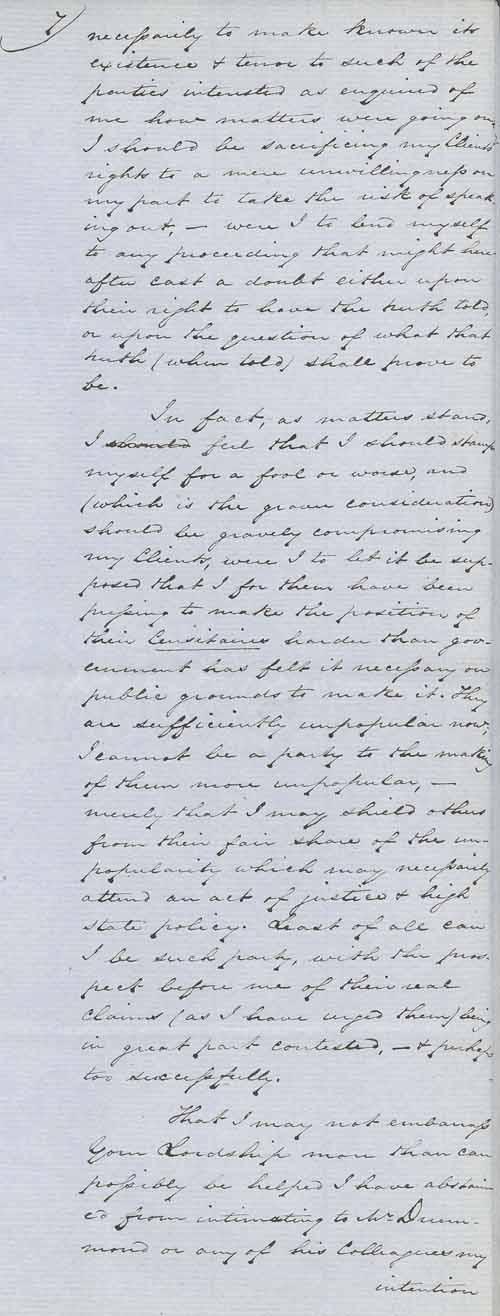 7/
necessarily to make known its
existence & tenor to such of the
parties interested as enquired of
me how matters were going on,
I should be sacrificing my Clients'
rights to a mere unwillingness on
my part to take the risk of speak
ing out, — were I to lend myself
to any proceeding that might here
after cast a doubt either upon
their right to have the truth told,
or upon the question of what that
truth (when told) shall prove to
be.
In fact, as matters stand,
I should feel that I should stamp
myself for a fool or worse, and
(which is the graver consideration)
should be gravely compromising
my Clients, were I to let it be sup-
posed that I for them have been
pressing to make the position of
their Censitaires harder than gov-
ernment has felt it necessary on
public grounds to make it. They
are sufficiently unpopular now;
I cannot be a party to the making
of them more unpopular, —
merely that I may shield others
from their fair share of the un-
popularity which may necessarily
attend an act of justice & high
state policy. Least of all can
I be such party, with the pros-
pect before me of their real
claims (as I have urged them) being
in great part contested, — & perhaps
too successfully.
That I may not embarrass
Your Lordship more than can
possibly be helped I have abstain
ed from intimating to Mr Drum-
mond or any of his Colleagues my
intention